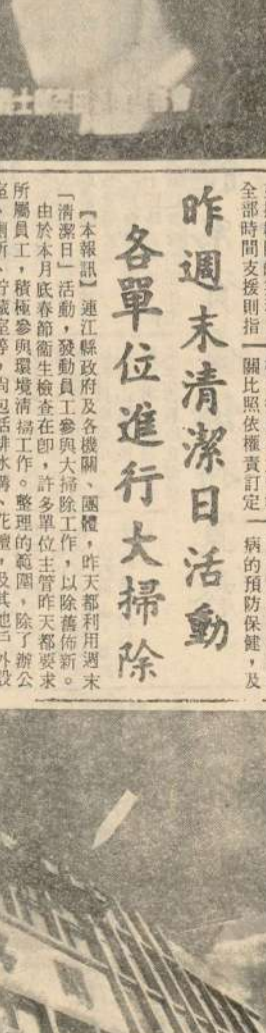 全部時間支援則指
關比照依權責訂定
病的預防保健，及
昨週末清潔日活動
各單位進行大掃除
【本報訊】連江縣政府及各機關、團體，昨天都利用週末
「清潔日」活動，發動員工參與大掃除工作，以除舊佈新。
由於本月底春節衛生檢查在卽，許多單位主管昨天都要求
所屬員工，積極參與環境清掃工作。整理的範圍，除了辦公